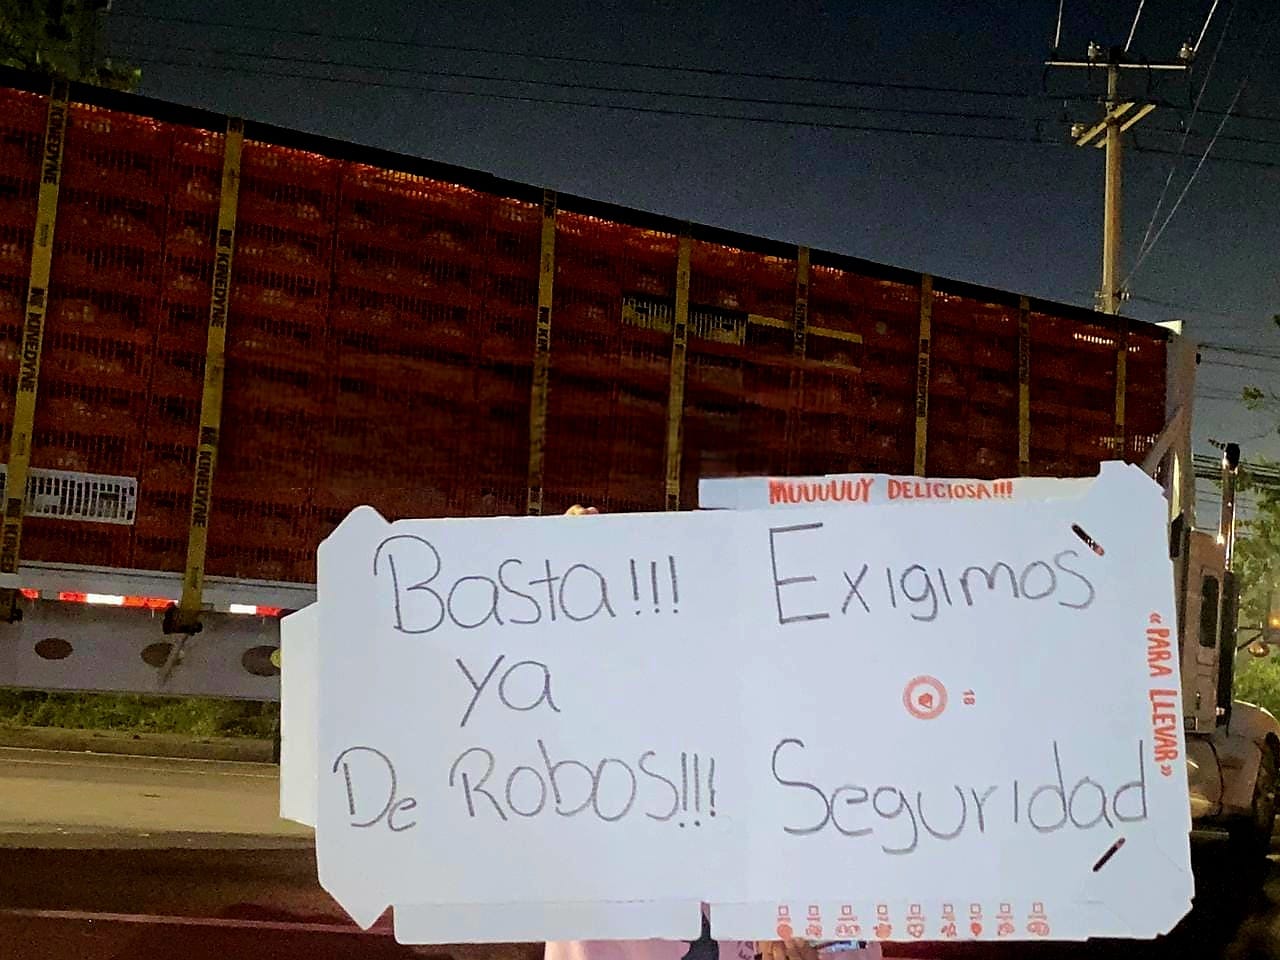 KINEDYNE
KINEDYNE
KINEDYNE
KINEDYNE
MUUUUUY DELICIOSA!!!
Basta!!!
ya
De Robos!!!
Exigimos
18
Seguridad
«PARA LLEVAR»